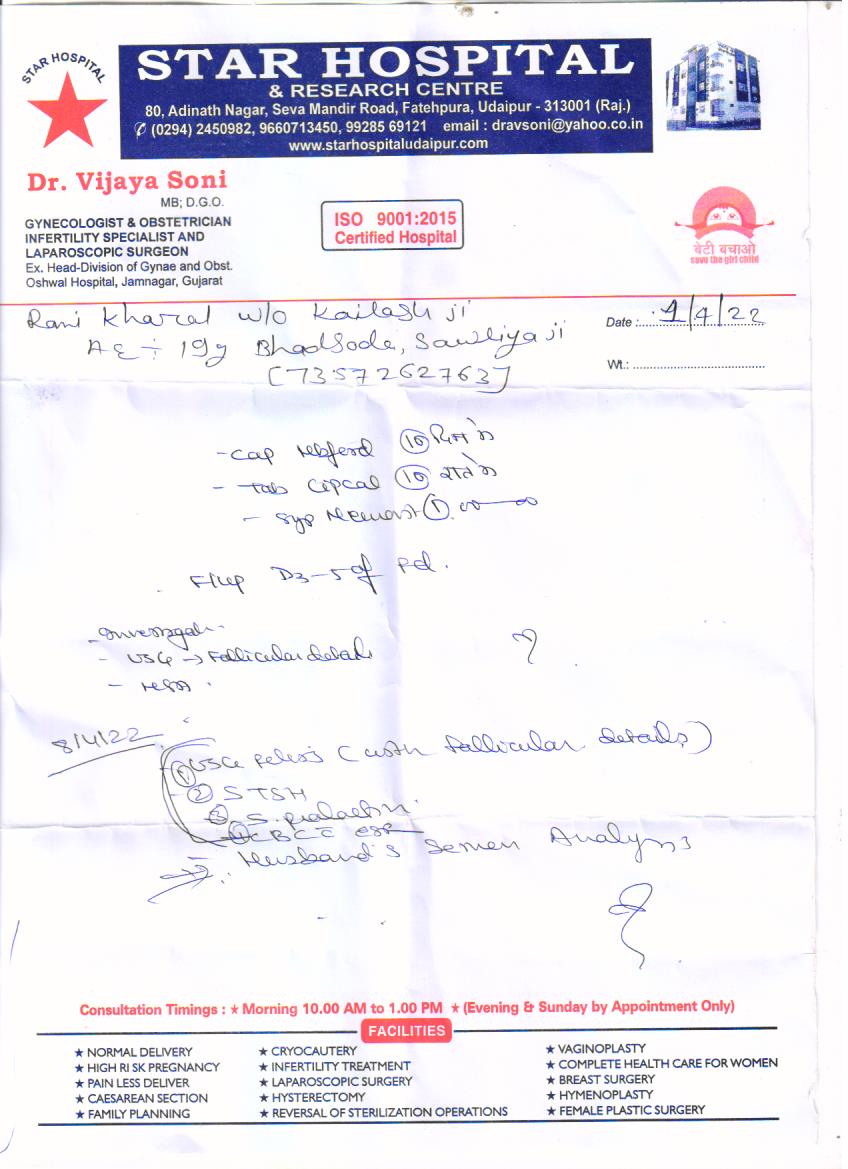 STAR HOSPITAL
STAR HOSPITAL
& RESEARCH CENTRE
80, Adinath Nagar, Seva Mandir Road, Fatehpura, Udaipur - 313001 (Raj.)
✆ (0294) 2450982, 9660713450, 99285 69121 email : dravsoni@yahoo.co.in
www.starhospitaludaipur.com
Dr. Vijaya Soni
MB; D.G.O.
GYNECOLOGIST & OBSTETRICIAN
INFERTILITY SPECIALIST AND
LAPAROSCOPIC SURGEON
Ex. Head-Division of Gynae and Obst.
Oshwal Hospital, Jamnagar, Gujarat
ISO 9001:2015
Certified Hospital
बेटी बचाओ
save the girl child
Rani Kharal w/o Kailash ji
Date : 1/4/22
19y Bhadsoda, Sawliya ji
Wt.:
[7357262763]
- cap 10
- Tab Cipcal 10
- syp 1
F/up D3-5 of Pd.
- USG → Follicular details
8/4/22
① USG Pelvis (with follicular details)
② S TSH
③ S. prolactin
④ CBC c ESR
Husband's Semen Analysis
Consultation Timings : ★ Morning 10.00 AM to 1.00 PM ★ (Evening & Sunday by Appointment Only)
FACILITIES
★ NORMAL DELIVERY
★ HIGH RI SK PREGNANCY
★ PAIN LESS DELIVER
★ CAESAREAN SECTION
★ FAMILY PLANNING
★ CRYOCAUTERY
★ INFERTILITY TREATMENT
★ LAPAROSCOPIC SURGERY
★ HYSTERECTOMY
★ REVERSAL OF STERILIZATION OPERATIONS
★ VAGINOPLASTY
★ COMPLETE HEALTH CARE FOR WOMEN
★ BREAST SURGERY
★ HYMENOPLASTY
★ FEMALE PLASTIC SURGERY